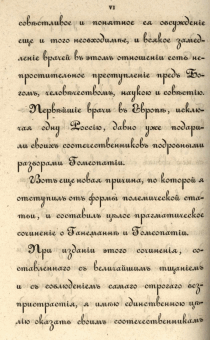 VI
совѣстливое и понятное ея обсужденіе
еще и того необходимѣе, и всякое замед-
леніе врачей въ этомъ отношеніи есть не-
простительное преступленіе предъ Бо-
гомъ, человѣчествомъ, наукою и совѣстію.
Первѣйшіе врачи въ Европѣ, исклю-
чая одну Россію, давно уже подари-
ли своихъ соотечественниковъ подробными
разборами Гомеопатіи.
Вотъ еще новая причина, по которой я
отступилъ отъ формы полемической ста-
тьи, и составилъ цѣлое прагматическое
сочиненіе о Ганеманнѣ и Гомеопатіи.
При изданіи этого сочиненія, со-
ставленнаго съ величайшимъ тщаніемъ
и съ соблюденіемъ самаго строгаго без-
пристрастія, я имѣю единственною цѣ-
лію оказать своимъ соотечественникамъ